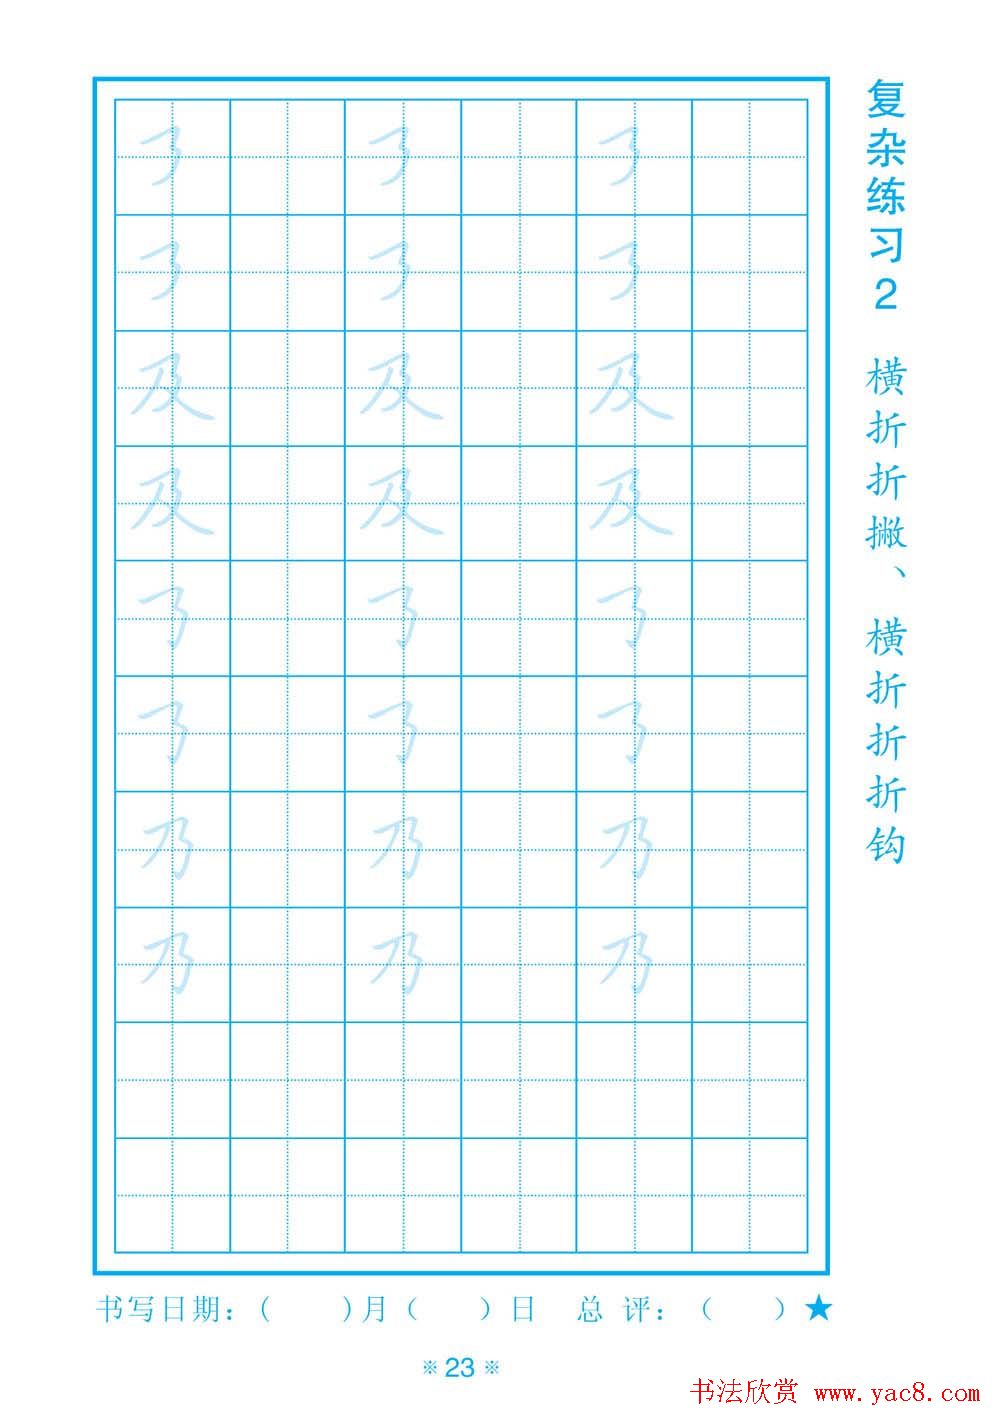 复杂练习2 横折折撇、横折折折钩
㇋ ㇋ ㇋
㇋ ㇋ ㇋
及 及 及
及 及 及
㇡ ㇡ ㇡
㇡ ㇡ ㇡
乃 乃 乃
乃 乃 乃
书写日期：（ ）月（ ）日 总 评：（ ）★
※ 23 ※
书法欣赏 www.yac8.com